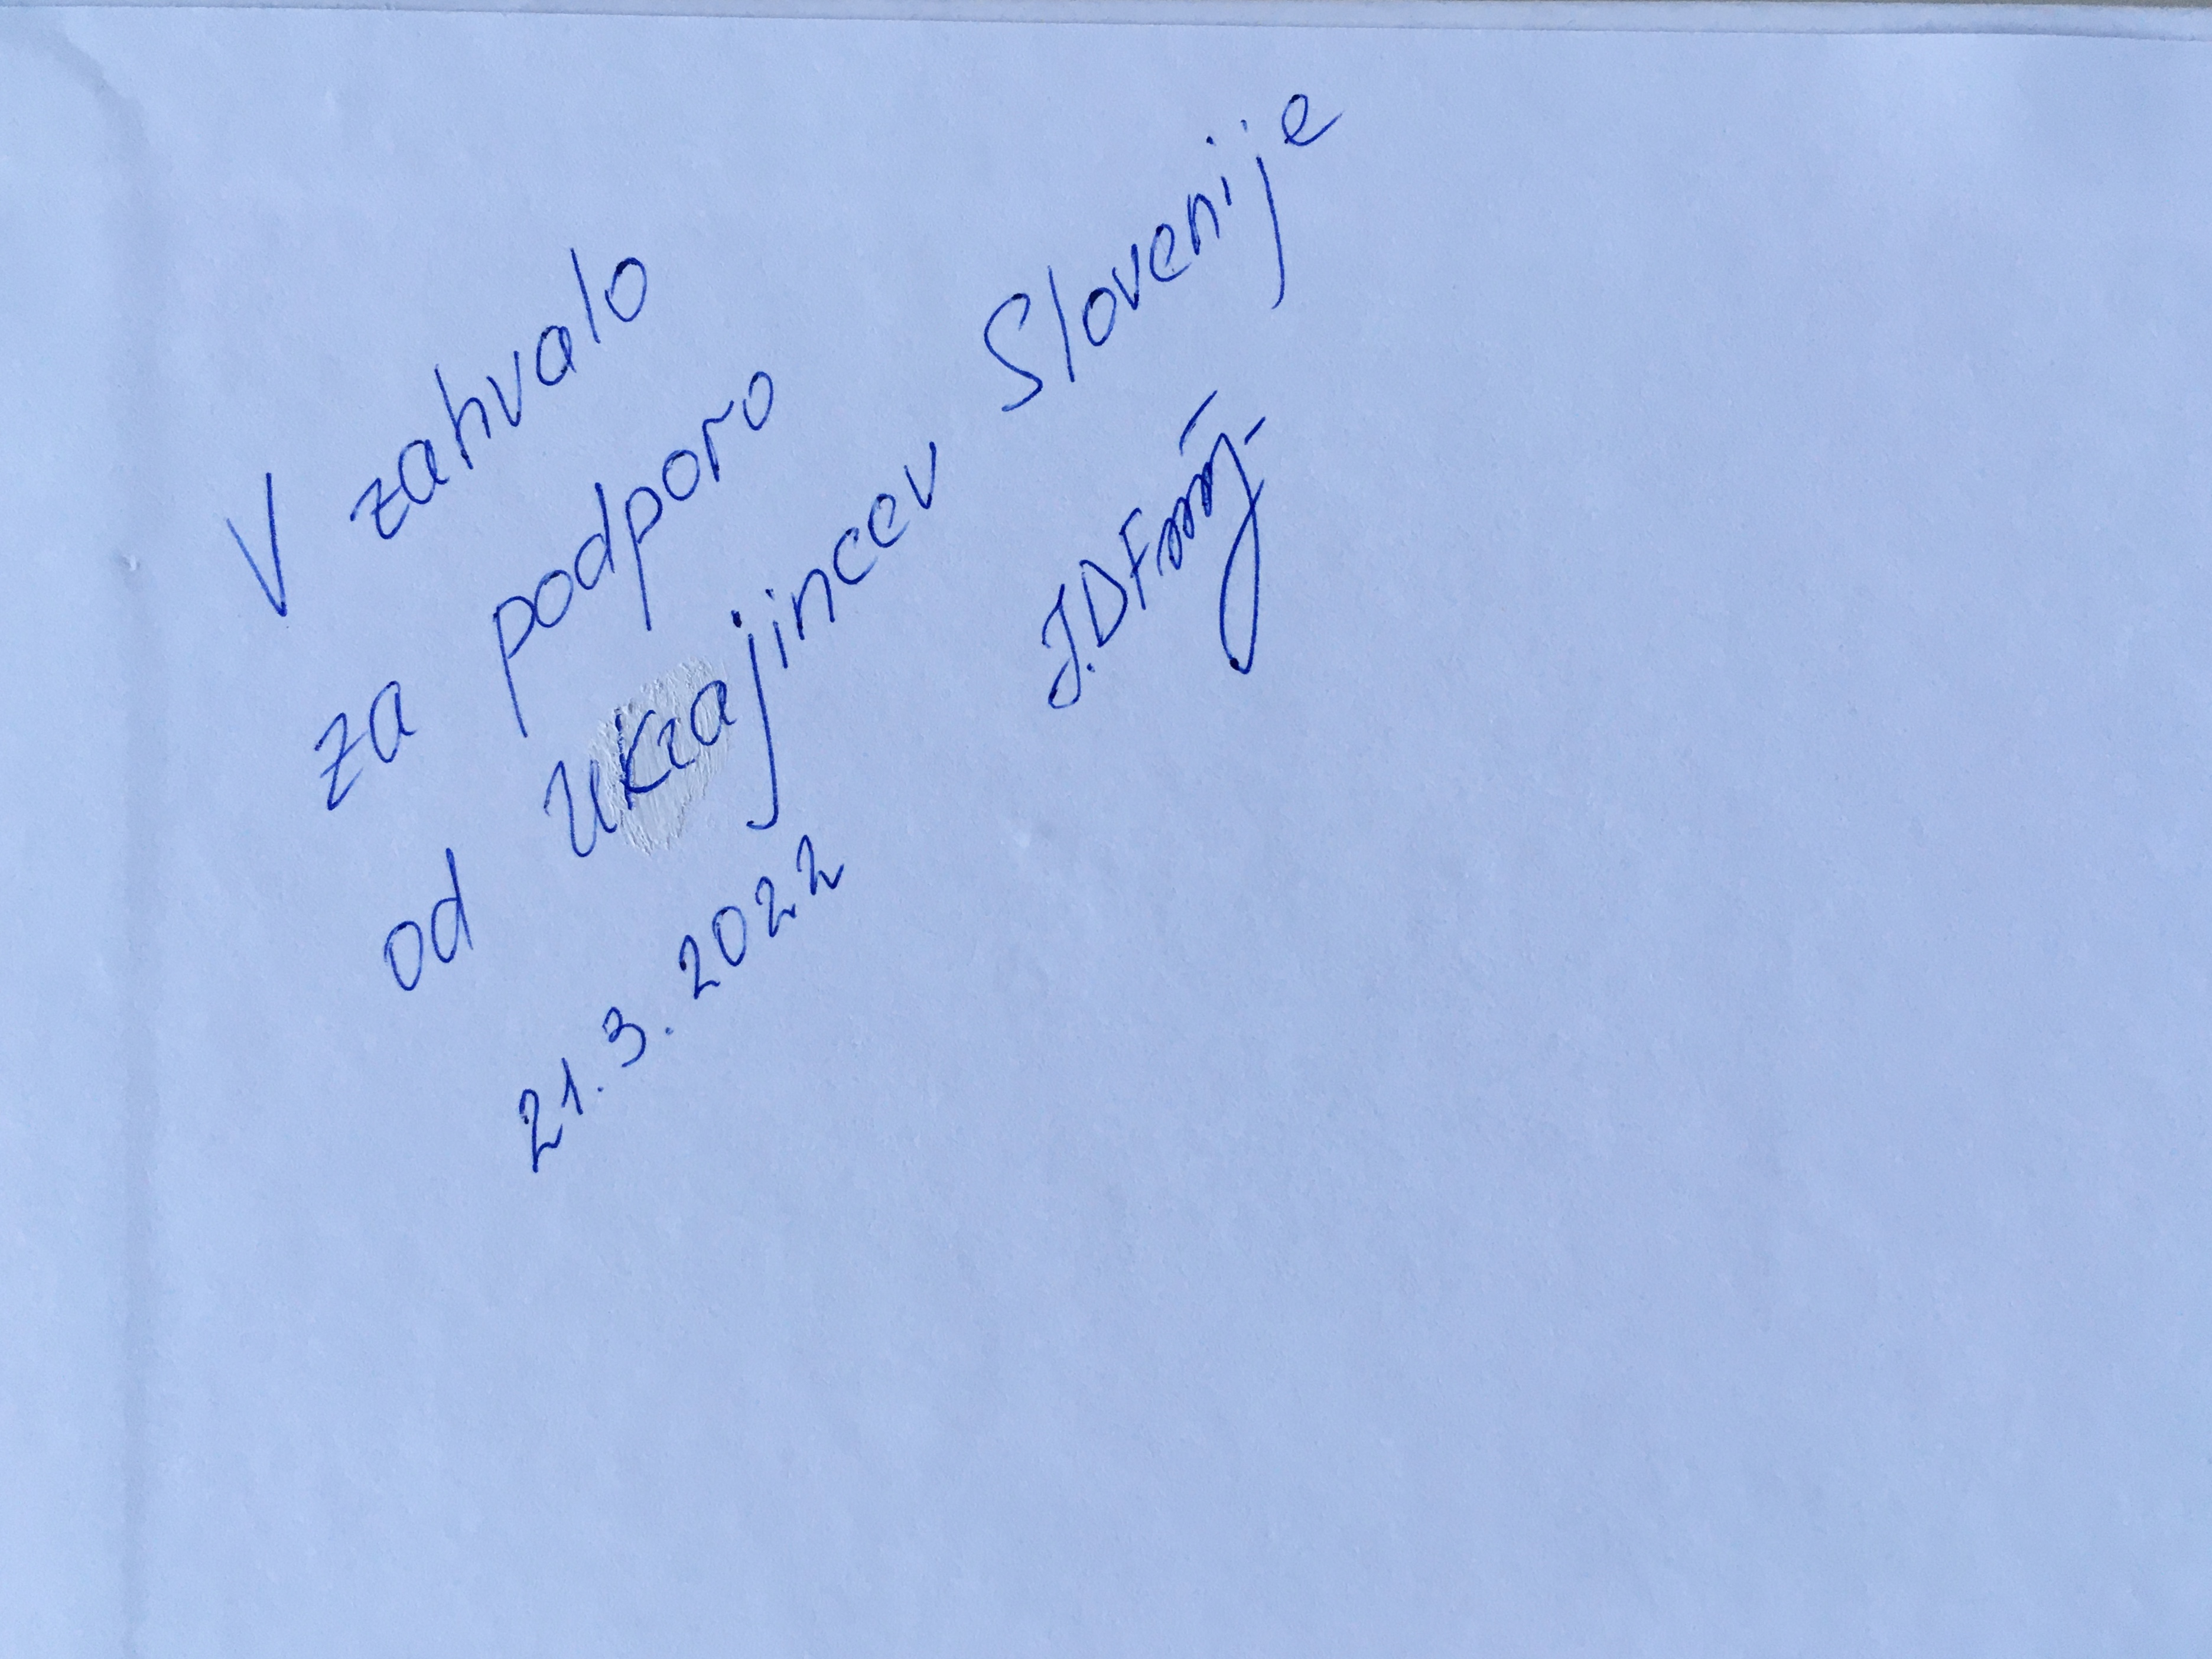 V zahvalo
za podporo
od Ukrajincev Slovenije
21.3.2022